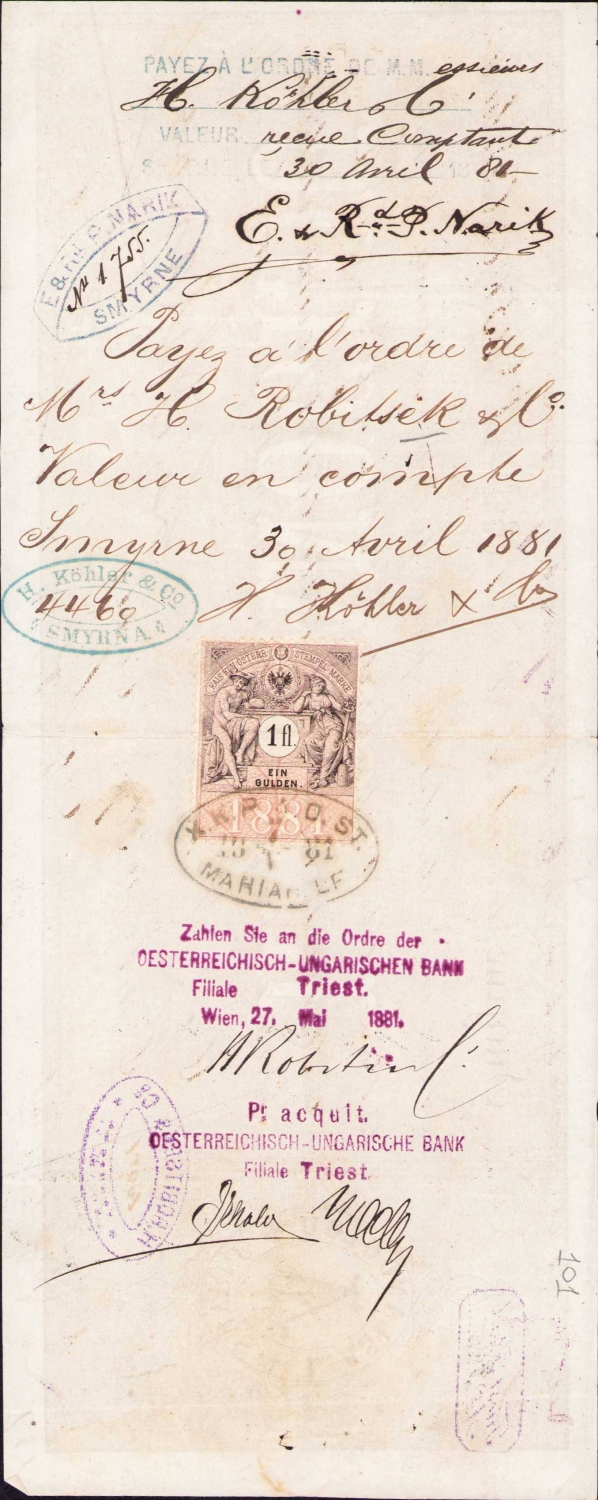 PAYEZ À L'ORDRE DE M.M. essieurs
H. Köhler & Cⁱᵉ
VALEUR reçue Comptant
30 Avril 81
E. & Rd. P. Narik
E & Rd P. NARIK
No 1755.
SMYRNE
Payez à l'ordre de
Mrs H. Robitsek & Co.
Valeur en compte
Smyrne 30 Avril 1881
H. Köhler & Co
H. Köhler & Co
4460
SMYRNA
KAIS. KÖN. ÖSTERR. STEMPEL MARKE
1 fl.
EIN
GULDEN.
1881
81
Zahlen Sie an die Ordre der
OESTERREICHISCH-UNGARISCHEN BANK
Filiale Triest.
Wien, 27. Mai 1881.
H Robitsek
Pr. acquit.
OESTERREICHISCH-UNGARISCHE BANK
Filiale Triest
H. ROBITSEK & Co
101